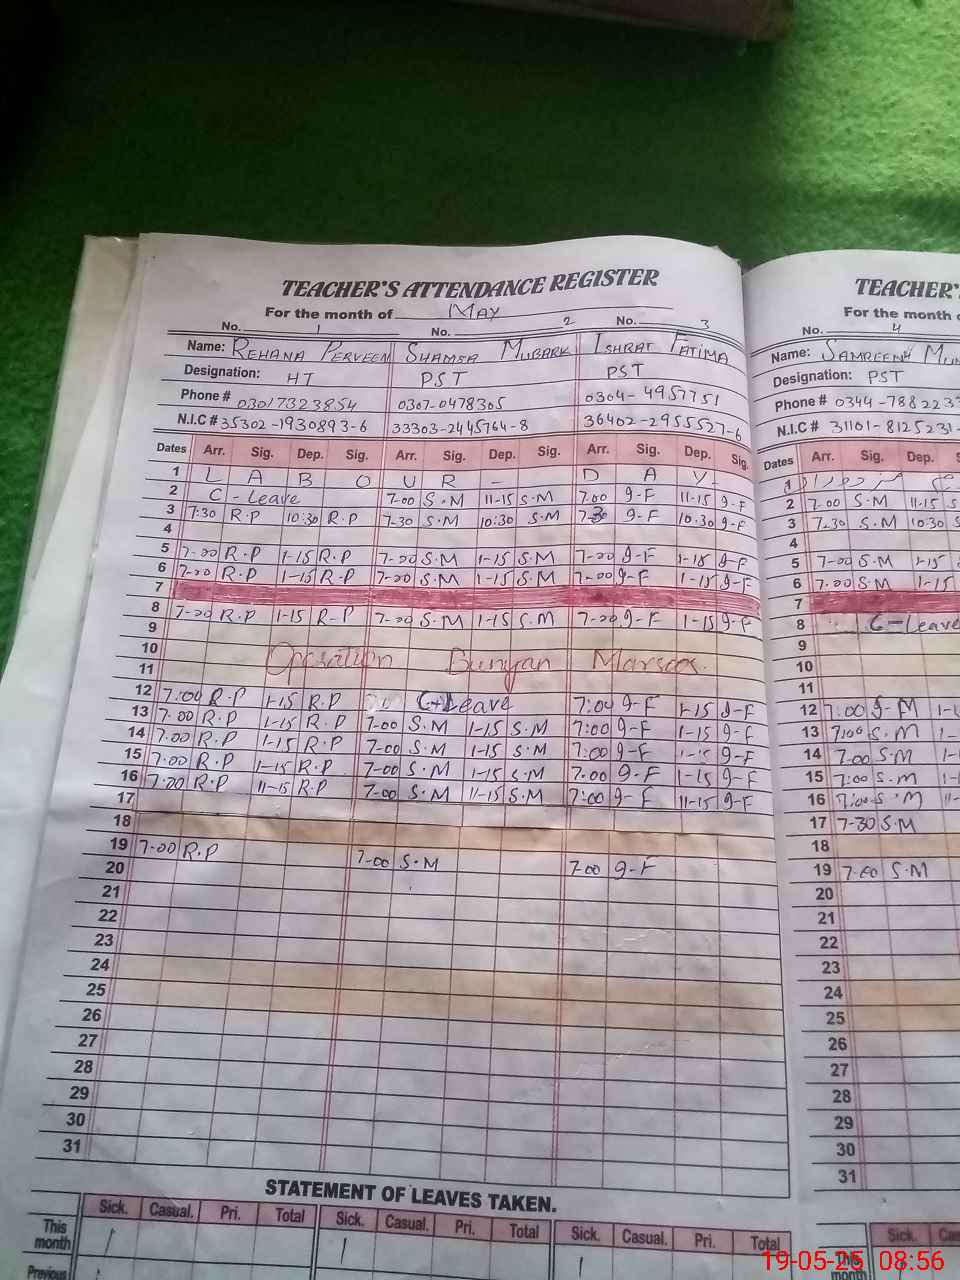 TEACHER'S ATTENDANCE REGISTER
For the month of MAY
No. 1 No. 2 No. 3
Name: REHANA PERVEEN SHAMSA MUBARK ISHRAT FATIMA
Designation: HT PST PST
Phone # 03017323854 0307-0478305 0304-4957751
N.I.C # 35302-1930893-6 33303-2445764-8 36402-2955527-6
Dates Arr. Sig. Dep. Sig. Arr. Sig. Dep. Sig. Arr. Sig. Dep. Sig.
1 L A B O U R - D A Y
2 C-Leave 7-00 S.M 11-15 S.M 7.00 I-F 11-15 I-F
3 7:30 R.P 10:30 R.P 7-30 S.M 10:30 S.M 7-30 I-F 10:30 I-F
4
5 7-00 R.P 1-15 R.P 7-00 S.M 1-15 S.M 7-00 I-F 1-15 I-F
6 7-00 R.P 1-15 R.P 7-00 S.M 1-15 S.M 7-00 I-F 1-15 I-F
7
8 7-00 R.P 1-15 R-P 7-00 S.M 1-15 S.M 7-00 I-F 1-15 I-F
9
10 Operation Bunyan Marsoos.
11
12 7:00 R.P 1-15 R.P C-Leave 7:00 I-F 1-15 I-F
13 7-00 R.P 1-15 R.P 7-00 S.M 1-15 S.M 7:00 I-F 1-15 I-F
14 7.00 R.P 1-15 R.P 7-00 S.M 1-15 S.M 7:00 I-F 1-15 I-F
15 7:00 R.P 1-15 R.P 7-00 S.M 1-15 S.M 7.00 I-F 1-15 I-F
16 7:00 R.P 11-15 R.P 7-00 S.M 11-15 S.M 7:00 I-F 11-15 I-F
17
18
19 7-00 R.P 7-00 S.M 7.00 I-F
20
21
22
23
24
25
26
27
28
29
30
31
STATEMENT OF LEAVES TAKEN.
Sick. Casual. Pri. Total Sick. Casual. Pri. Total Sick. Casual. Pri. Total
This month
Previous
TEACHER'S
For the month
No. 4
Name: SAMREENA
Designation: PST
Phone # 0344-788223
N.I.C # 31101-8125231-
Dates Arr. Sig. Dep.
1
2 7-00 S.M 11-15
3 7-30 S.M 10:30
4
5 7-00 S.M 1-15
6 7.00 S.M 1-15
7
8 C-Leave
9
10
11
12 7:00 S-M
13 7:00 S.M
14 7-00 S.M
15 7:00 S.M
16 7:00 S.M
17 7-30 S.M
18
19 7-00 S.M
20
21
22
23
24
25
26
27
28
29
30
31
Sick.
This month
19-05-25 08:56